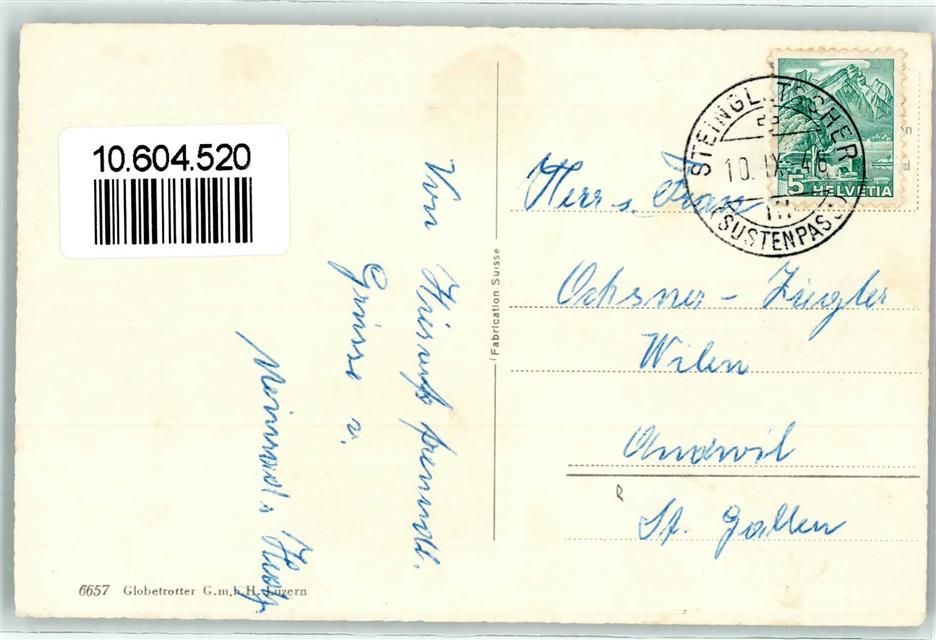 10.604.520
Von
freundl.
Grüsse v.
Fabrication Suisse
6657 Globetrotter G.m.b.H. Luzern
STEINGLETSCHER
10. IX. 46
(SUSTENPASS)
5 HELVETIA
Herr u. Frau
Ochsner - Ziegler
Wilen
Andwil
St. Gallen